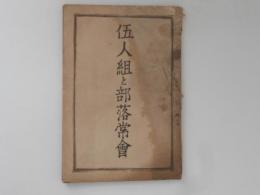 伍人組と部落常會